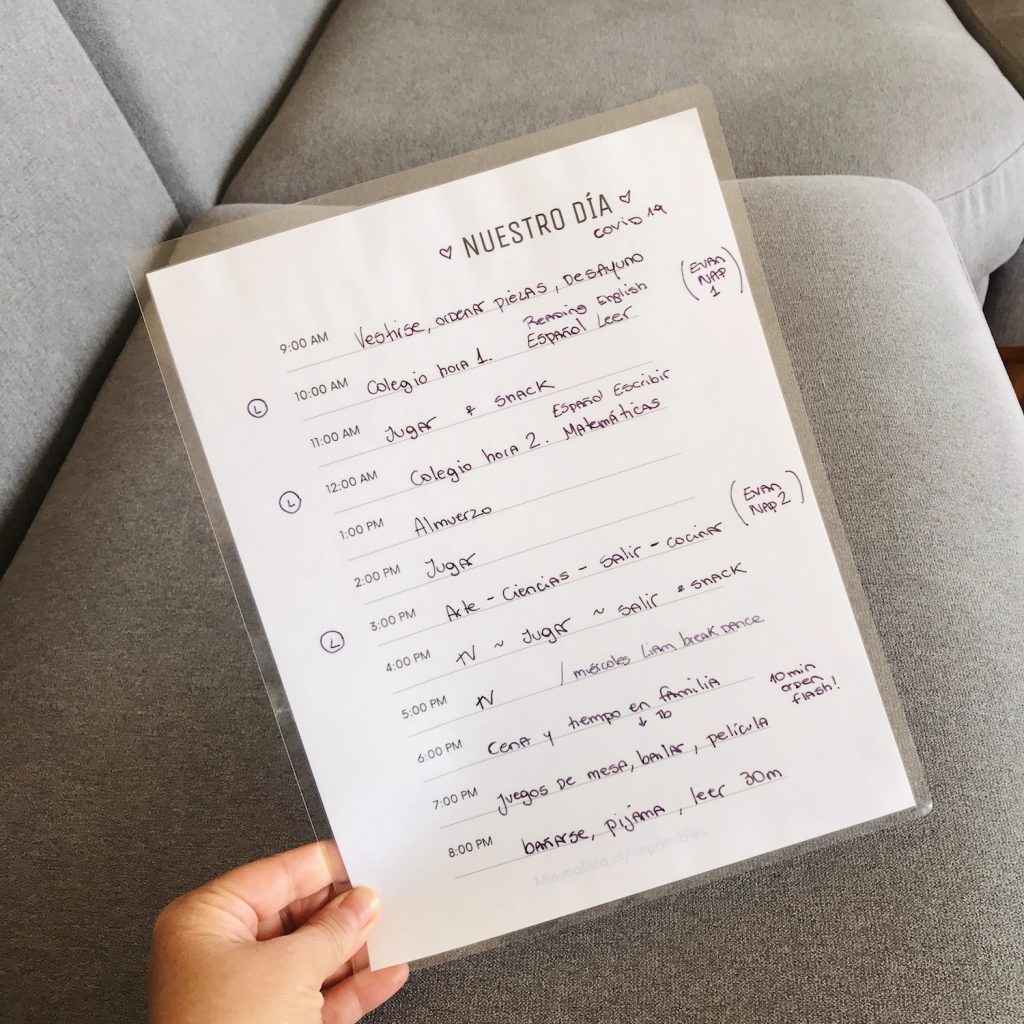 ♡ NUESTRO DÍA ♡
COVID 19
9:00 AM Vestirse, ordenar piezas, desayuno
(EVAN NAP 1)
Reading English
10:00 AM Colegio hora 1. ESPAÑOL Leer
L
11:00 AM Jugar & SNACK
ESPAÑOL Escribir
12:00 AM Colegio hora 2. Matemáticas
L
1:00 PM Almuerzo
2:00 PM Jugar
(EVAN NAP 2)
3:00 PM Arte - Ciencias - Salir - cocinar
L
4:00 PM TV ~ Jugar ~ Salir & SNACK
5:00 PM TV / miércoles Liam break DANCE
6:00 PM Cena y tiempo en familia
10 min orden flash!
↓
7:00 PM Juegos de mesa, bailar, película
8:00 PM bañarse, pijama, leer 30m
Minimalista.cl/imprimibles